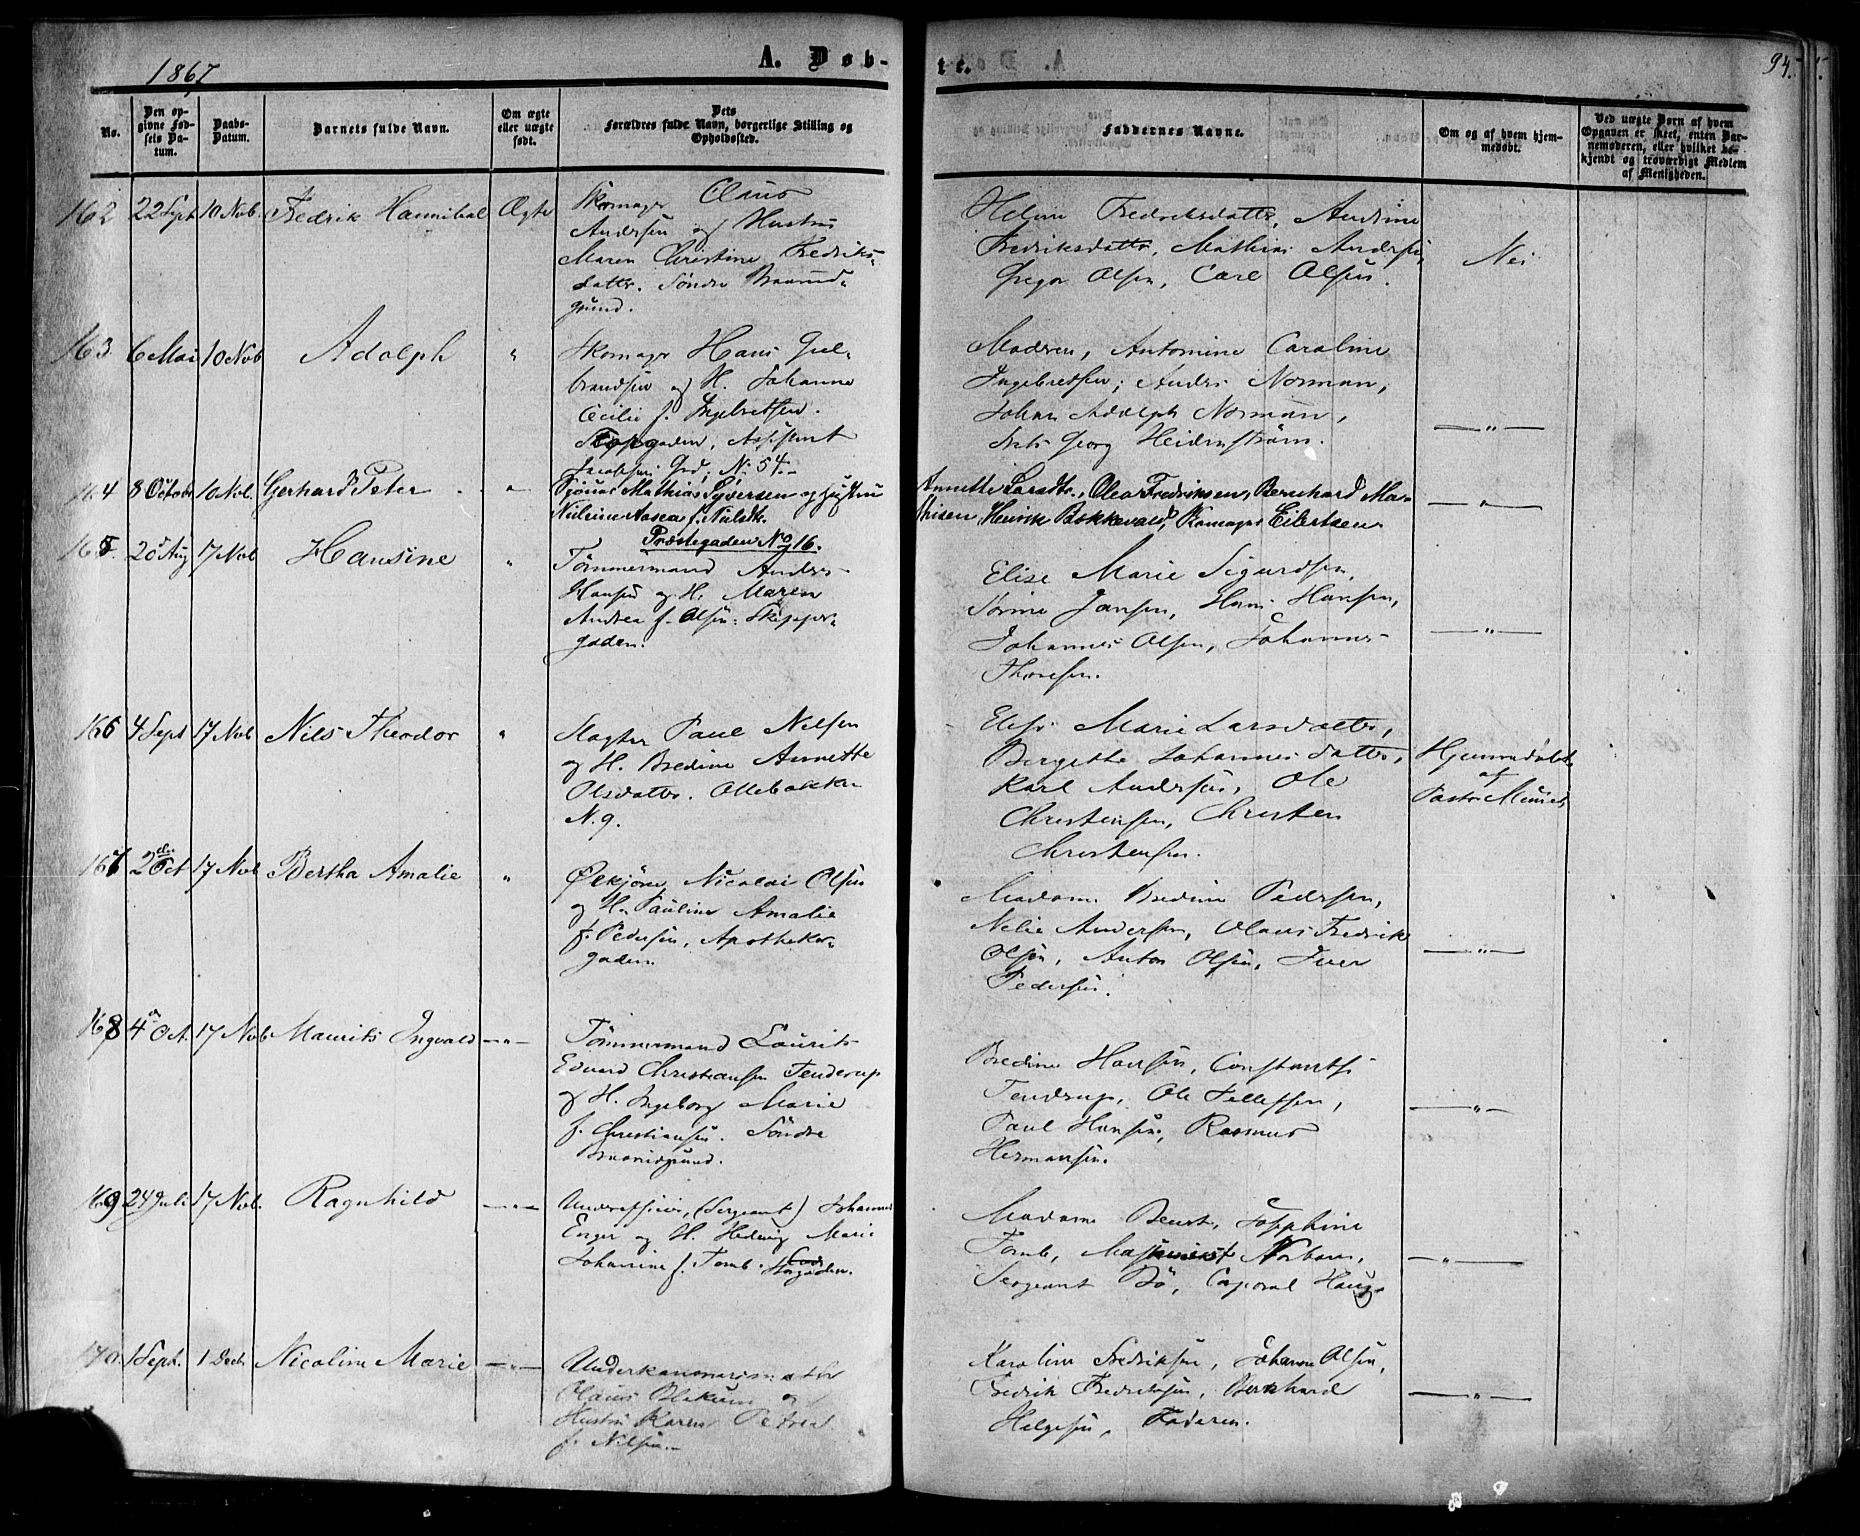 1867
A. Døb-
te.
94.
No.
Den op-
givne Fød-
sels Da-
tum.
Daabs-
Datum.
Barnets fulde Navn.
Om ægte
eller uægte
født.
Dets
Forældres fulde Navn, borgerlige Stilling og
Opholdssted.
Faddernes Navne.
Om og af hvem hjem-
medøbt.
Ved uægte Børn af hvem
Opgaven er skeet, enten Bar-
nemoderen, eller hvilket be-
kjendt og troværdigt Medlem
af Menigheden.
162 22 Sept 10 Nov Fredrik Hannibal Ægte
Skomager Olaus
Andersen og Hustru
Maren Christine Fredriks-
datter. Søndre
grund.
Helene Fredriksdatter, Andrine
Fredriksdatter, Mathias Andersen,
Gregor Olsen, Carl Olsen.
Nei
163 6 Mai 10 Nov Adolph "
Skomager Hans Gul-
brandsen og H. Johanne
Cecilie f. Ingebretsen.
Assistent
Jacobsens Grd. N. 54.
Madsen, Antomine Caroline
Ingebredsen, Anders Norman,
Johan Adolph Norman,
Georg Heidenstrøm.
— " —
164 8 Octobr 10 Nov. Gerhard Peter "
Mathias Syversen og Hustru
Aasea f. Nielsdtr.
Præstegaden No 16.
Annette Larsdtr., Olea Fredriksen, Bernhard Ma-
thisen, Henrik Bokkevald, Eilertsen
— " —
165 25 Aug 17 Nov Hansine "
Tømmermand Anders
Hansen og H. Maren
Andrea f. Olsen. Skipper-
gaden.
Elise Marie Sigurdsen,
Sørine Jansen, Hans Hansen,
Johannes Olsen, Johannes
Thoresen.
— " —
166 4 Sept 17 Nov Nils Theodor "
Slagter Paul Nilsen
og H. Bredine Annette
Olsdatter. Ollebakken
N. 9.
Elise Marie Larsdatter,
Bergitte Johannesdatter,
Karl Andersen, Ole
Christensen, Christen
Christensen.
Hjemmedøbt
af
Pastor
167 2den Oct 17 Nov Bertha Amalie "
Nicolai Olsen
og H. Pauline Amalie
f. Pedersen, Apotheker-
gaden.
Madam Bredine Pedersen,
Nelie Andersen, Olaus Fredrik
Olsen, Anton Olsen, Iver
Pedersen.
— " —
168 4 Oct. 17 Nov Maurits Ingvald — " —
Tømmermand Laurits
Edvard Christiansen Tenderup
og H. Ingeborg Marie
f. Christiansen. Søndre
Bredine Hansen, Constantse
Tendrup, Ole Tellefsen,
Paul Hansen, Rasmus
Hermansen.
— " —
169 24 Juli 17 Nov. Ragnhild — " —
Underofficier, (Sergeant) Johannes
Enger og H. Hedvig Marie
Johannine f. Tomb. Storgaden.
Madam Beust, Josephine
Tomb, Maskinist Norbom,
Sergeant Bø, Corporal Haug.
— " —
170 1 Sept. 1 Decbr Nicoline Marie — " —
Underkanoner
Olaus og
Hustru Karen Petrea
f. Nilsen.
Karoline Fredriksen, Johanne Olsen,
Fredrik Fredriksen, Bernhard
Helgesen, Faderen.
— " —